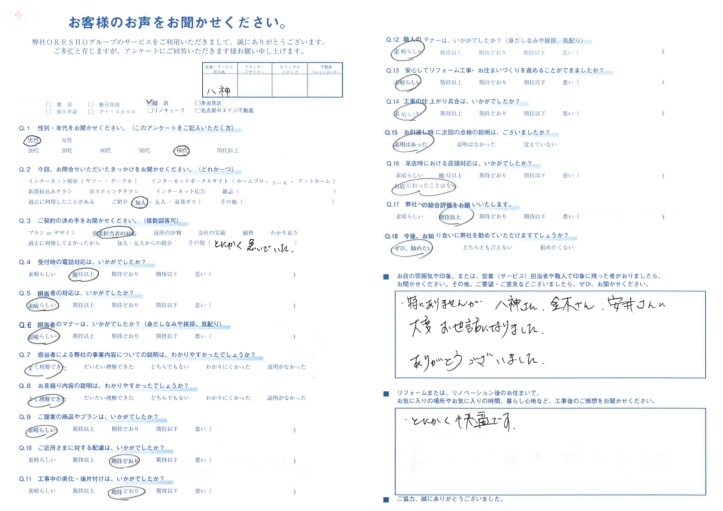 お客様のお声をお聞かせください。
弊社OKESHOグループのサービスをご利用いただきまして、誠にありがとうございます。
ご多忙と存じますが、アンケートにご回答いただきます様お願い申し上げます。
八神
緑 店
多治見店
春日井店
アイ・スタイル
リノキューブ
名古屋リエイジ不動産
Q.1 性別・年代をお聞かせください。(このアンケートをご記入いただく方)
男性 女性
20代 30代 40代 50代 60代 70代以上
Q.2 今回、お問合せいただいたきっかけをお聞かせください。(どれか一つ)
インターネット検索(ヤフー・グーグル) インターネットポータルサイト(ホームプロ・スーモ・アットホーム)
新聞折込みチラシ ポスティングチラシ インターネット広告 雑誌( )
過去に利用したことがある ご紹介(知人・友人・見残ガス) その他( )
Q.3 ご契約の決め手をお聞かせください。(複数回答可)
プラン or デザイン 営業担当者の対応 近所の評判 会社の実績 価格 わかり易さ
過去に利用してよかったから 知人・友人からの紹介 その他(とにかく急いでいた。
Q.4 受付時の電話対応は、いかがでしたか?
素晴らしい 期待以上 期待どおり 期待以下 悪い( )
Q.5 担当者の対応は、いかがでしたか?
素晴らしい 期待以上 期待どおり 期待以下 悪い( )
Q.6 担当者のマナーは、いかがでしたか?(身だしなみや挨拶、気配り)
素晴らしい 期待以上 期待どおり 期待以下 悪い( )
Q.7 担当者による弊社の事業内容についての説明は、わかりやすかったでしょうか?
よく理解できた だいたい理解できた どちらでもない わかりにくかった 説明がなかった
Q.8 お見積り内容の説明は、わかりやすかったでしょうか?
よく理解できた だいたい理解できた どちらでもない わかりにくかった 説明がなかった
Q.9 ご提案の商品やプランは、いかがでしたか?
素晴らしい 期待以上 期待どおり 期待以下 悪い( )
Q.10 ご近所さまに対する配慮は、いかがでしたか?
素晴らしい 期待以上 期待どおり 期待以下 悪い( )
Q.11 工事中の美化・後片付けは、いかがでしたか?
素晴らしい 期待以上 期待どおり 期待以下 悪い( )
Q.12 職人のマナーは、いかがでしたか?(身だしなみや挨拶、気配り)
素晴らしい 期待以上 期待どおり 期待以下 悪い( )
Q.13 安心してリフォーム工事・お住まいづくりを進めることができましたか?
素晴らしい 期待以上 期待どおり 期待以下 悪い( )
Q.14 工事の仕上がり具合は、いかがでしたか?
素晴らしい 期待以上 期待どおり 期待以下 悪い( )
Q.15 お引渡し時に次回の点検の説明は、ございましたか?
説明はあった 説明はなかった 覚えていない
Q.16 来店時における店頭対応は、いかがでしたか?
素晴らしい 期待以上 期待どおり 期待以下 悪い( )
お店に行ったことはない
Q.17 弊社への総合評価をお願いいたします。
素晴らしい 期待以上 期待どおり 期待以下 悪い( )
Q.18 今後、お知り合いに弊社を勧めていただけますでしょうか?
ぜひ、勧めたい どちらとも言えない 勧めたくない
■ お店の雰囲気や印象。または、営業(サービス)担当者や職人で印象に残った者がおりましたら、
お聞かせください。その他、ご要望・ご意見などございましたら、ぜひ、お聞かせください。
・特にありませんが 八神さん、金木さん、安井さんに
大変お世話になりました。
ありがとうございました。
■ リフォームまたは、リノベーション後のお住まいで、
お気に入りの場所やお気に入りの時間、暮らし心地など、工事後のご感想をお聞かせください。
・とにかく快適です。
■ ご協力、誠にありがとうございました。